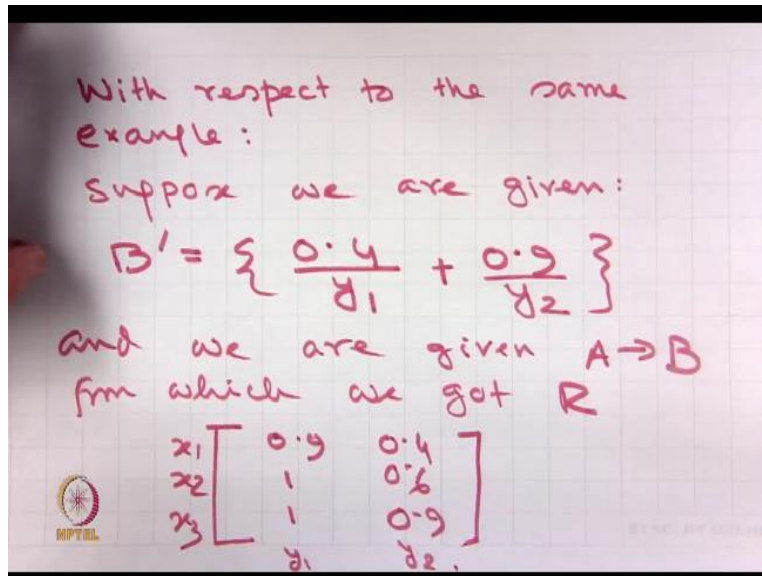 With respect to the same
example:
suppose we are given:
B' = { 0.4/y1 + 0.9/y2 }
and we are given A → B
from which we got R
x1 [ 0.9 0.4 ]
x2 [ 1 0.6 ]
x3 [ 1 0.9 ]
y1 y2.
NPTEL